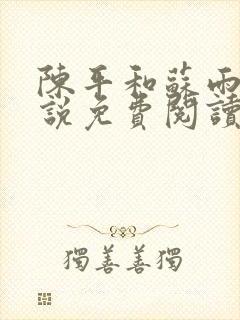 陳平和蘇雨
說免費閱讀
獨善善獨